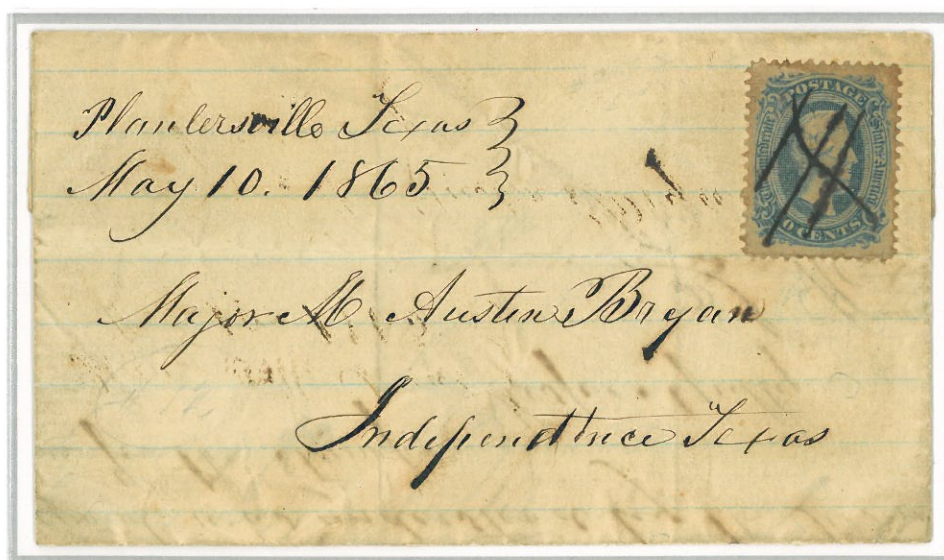 Plantersville Texas
May 10. 1865
POSTAGE
CENTS
Major M Austin Bryan
Independence Texas